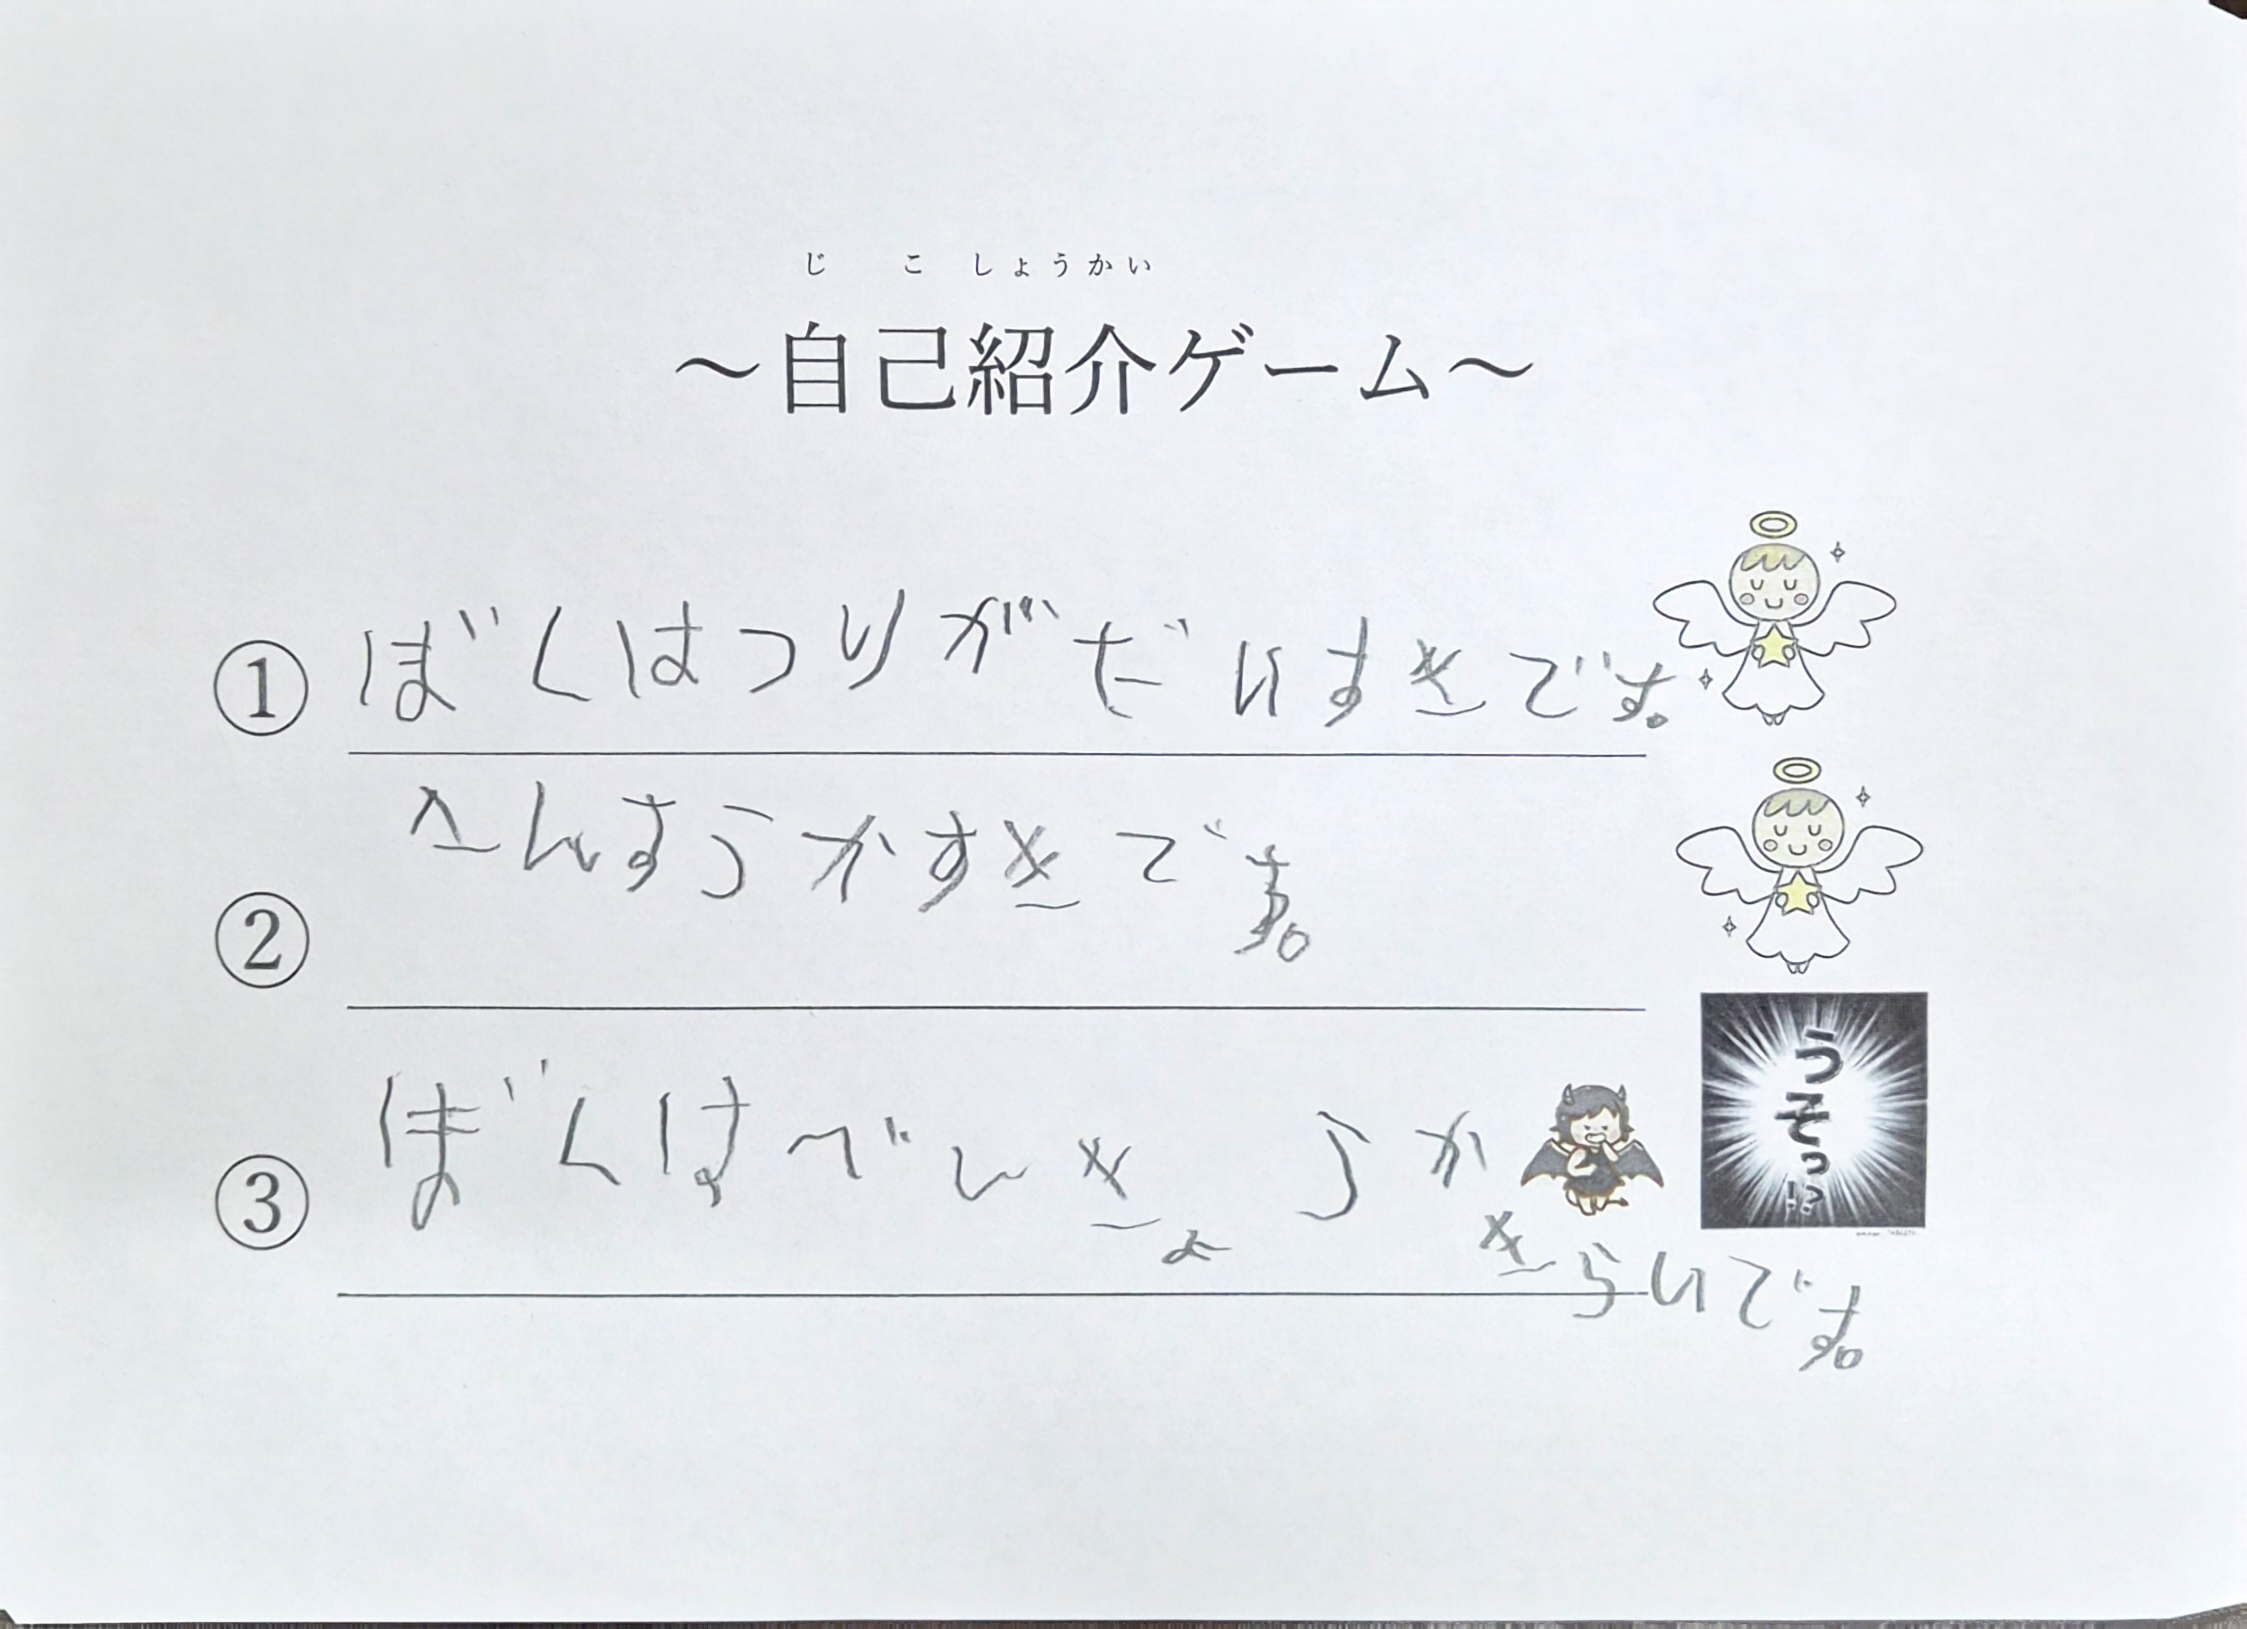 じこしょうかい
～自己紹介ゲーム～
① ぼくはつりがだいすきです。
② さんすうかすきです。
③ ぼくはべんきょうか
きらいです。
うそっ!?